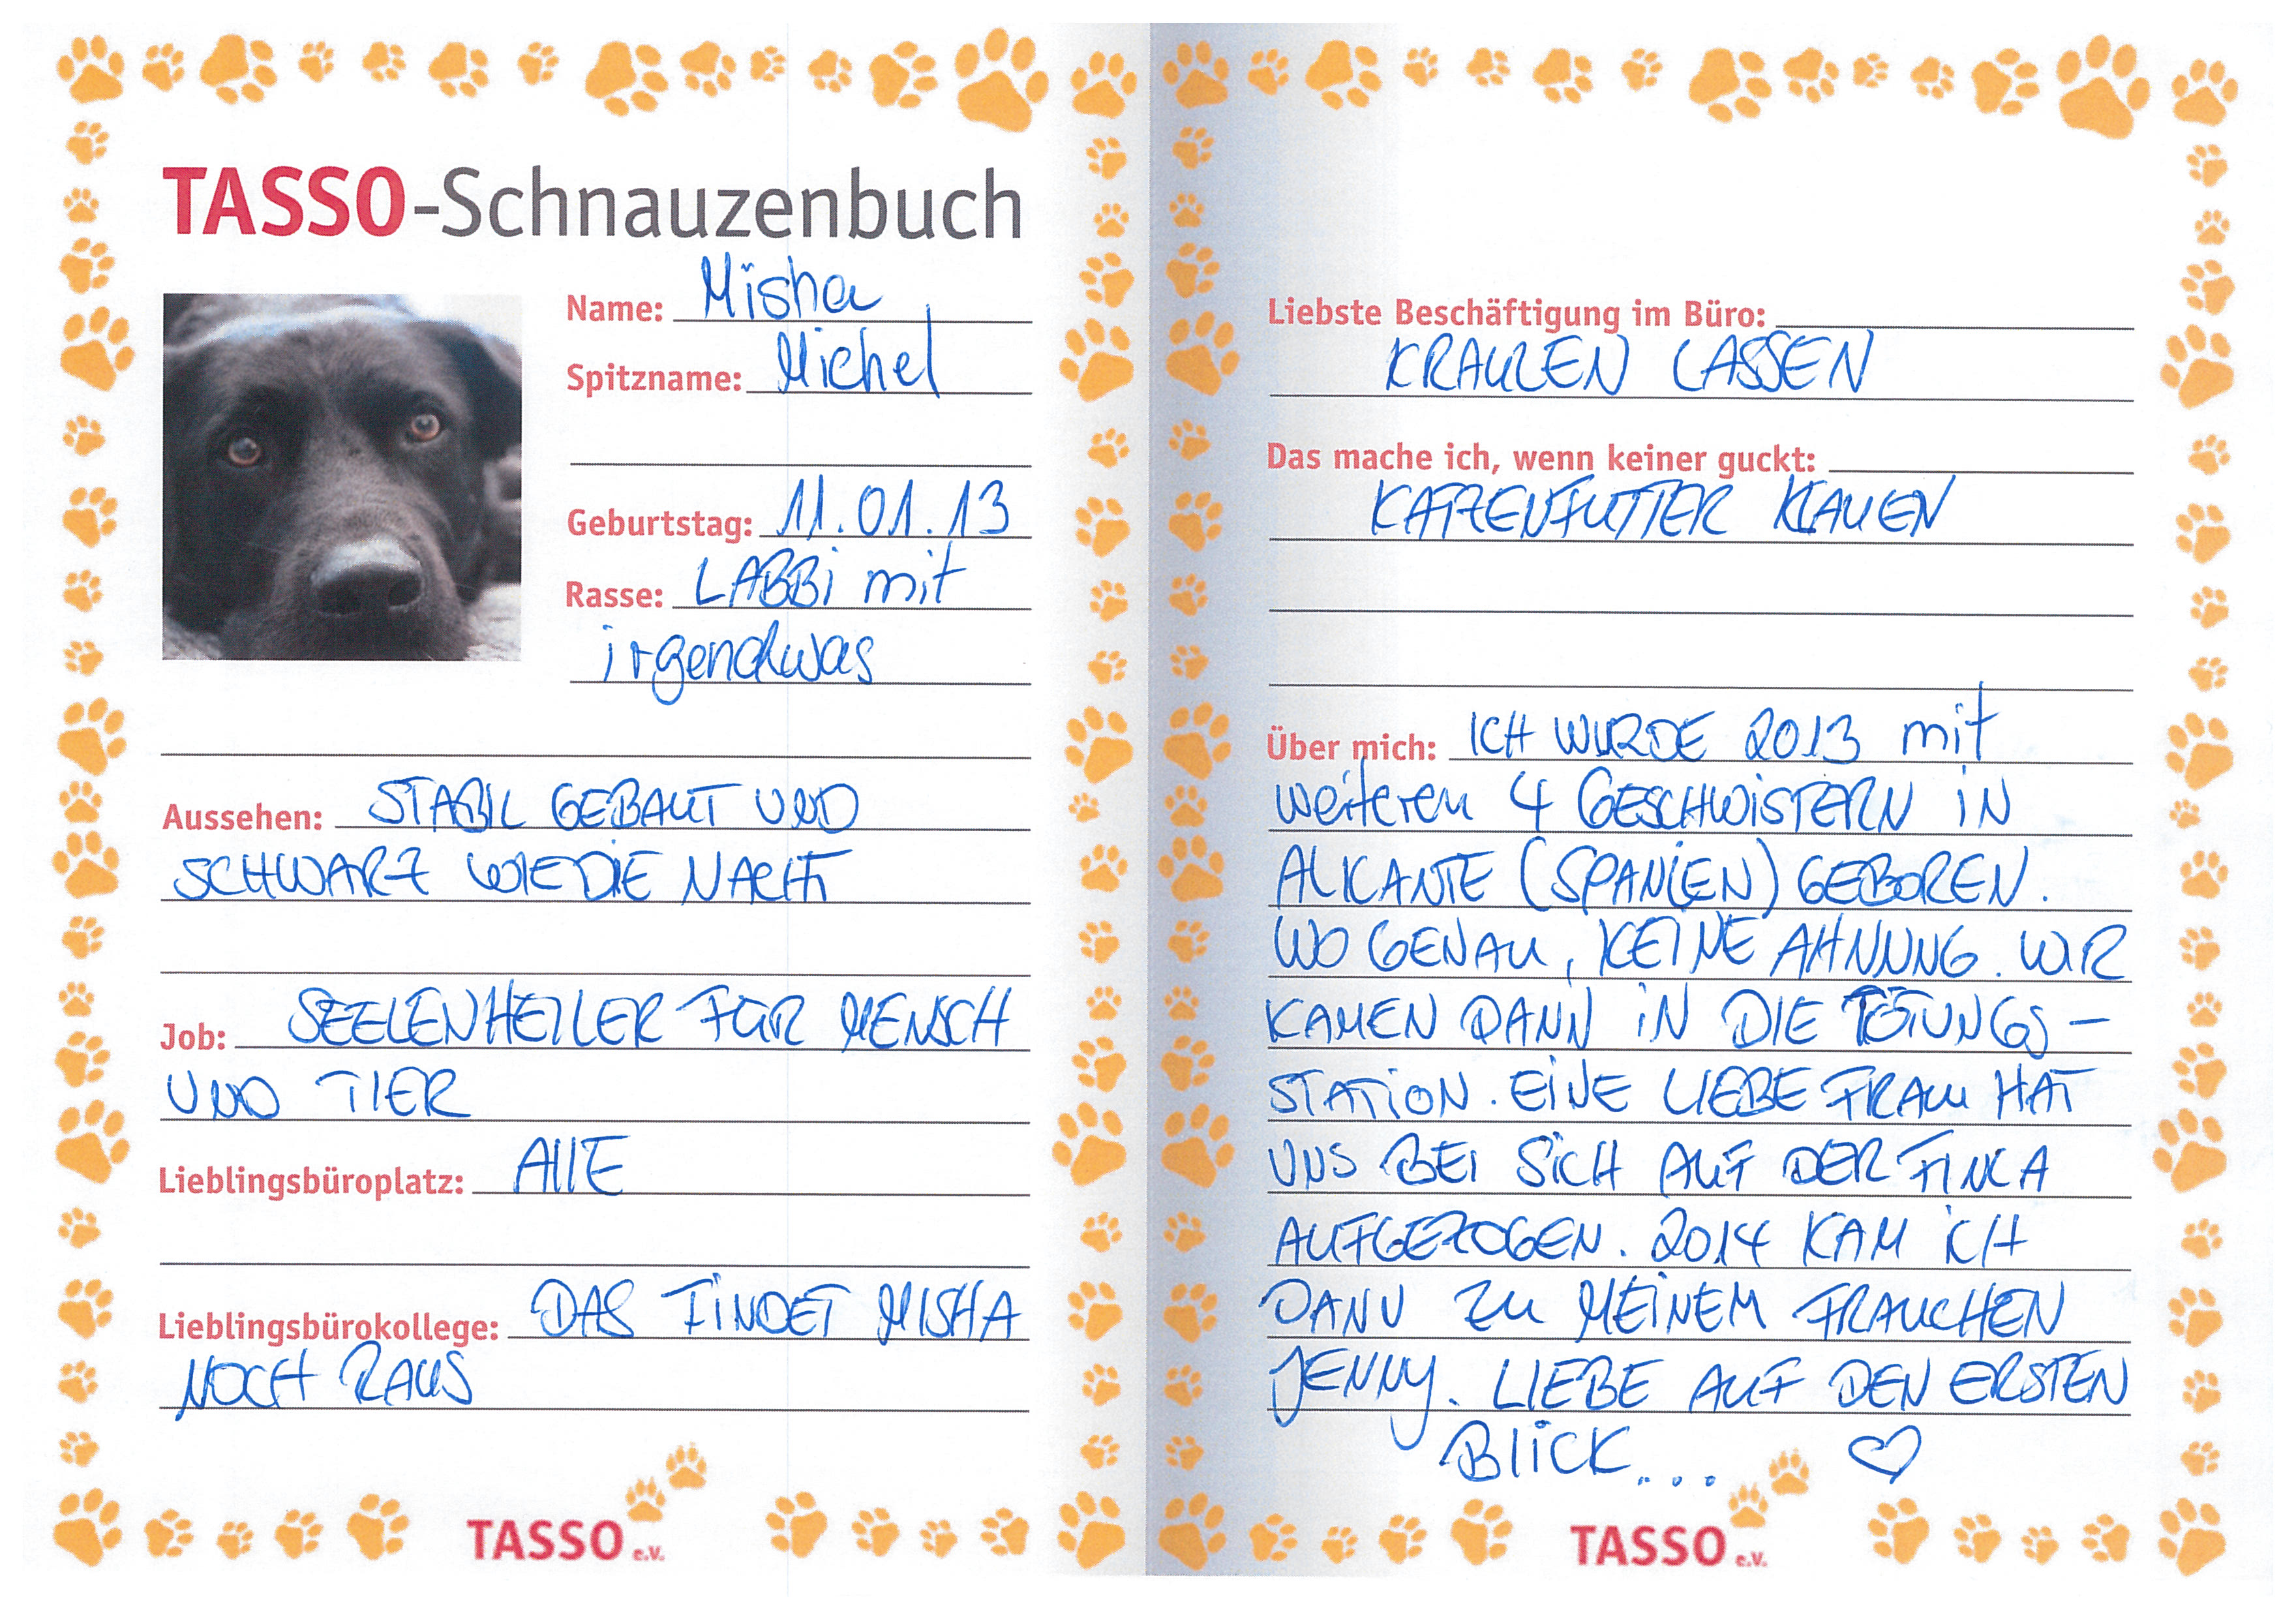 TASSO-Schnauzenbuch
Name: Misha
Spitzname: Michel
Geburtstag: 11.01.13
Rasse: LABBi mit
irgendwas
Aussehen: STABIL GEBAUT UND
SCHWARZ WIE DIE NACHT
Job: SEELENHEILER FÜR MENSCH
UND TIER
Lieblingsbüroplatz: AllE
Lieblingsbürokollege: DAS FINDET MISHA
NOCH RAUS
TASSO e.V.
Liebste Beschäftigung im Büro:
KRAULEN LASSEN
Das mache ich, wenn keiner guckt:
KATZENFUTTER KLAUEN
Über mich: ICH WURDE 2013 mit
weiteren 4 GESCHWISTERN IN
ALICANTE (SPANIEN) GEBOREN.
WO GENAU, KEINE AHNUNG. WIR
KAMEN DANN IN DIE TÖTUNGS-
STATION. EINE LIEBE FRAU HAT
UNS BEI SICH AUF DER FINCA
AUFGEZOGEN. 2014 KAM ICH
DANN ZU MEINEM FRAUCHEN
JENNY. LIEBE AUF DEN ERSTEN
BLICK... ♡
TASSO e.V.